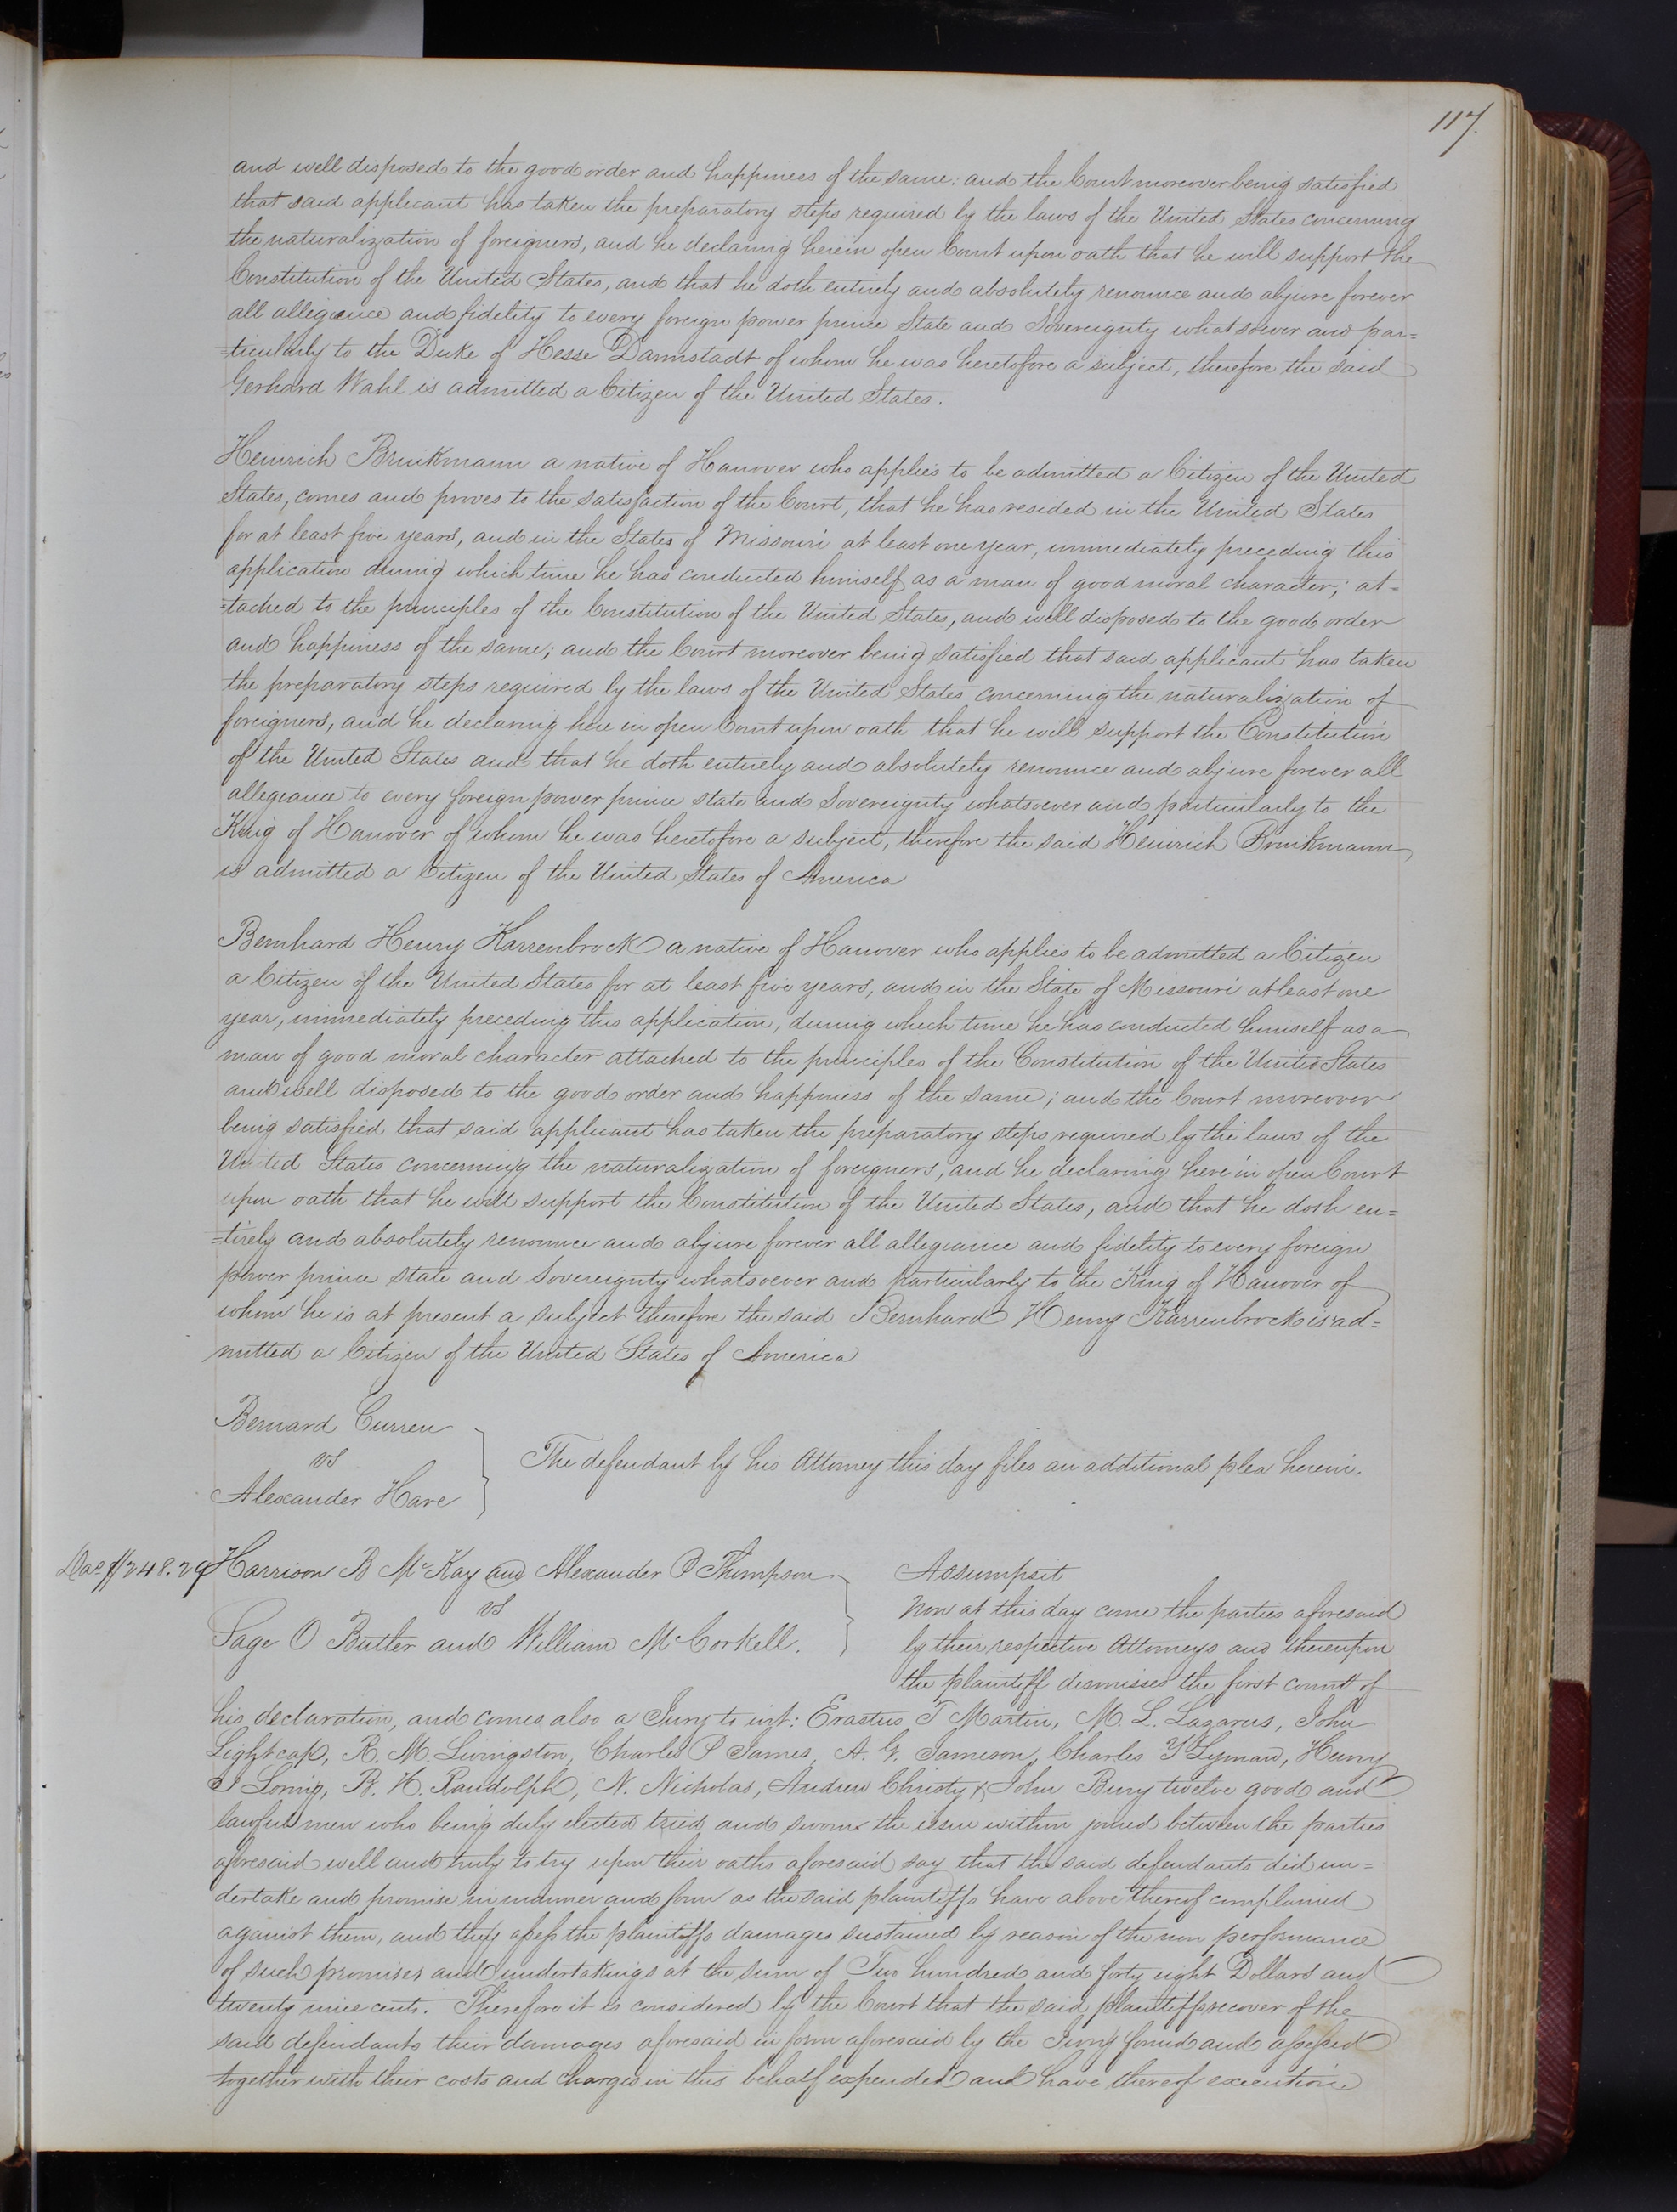 117.
and well disposed to the good order and happiness of the same: and the Court moreover being satisfied
that said applicant has taken the preparatory steps required by the laws of the United States concerning
the naturalization of foreigners, and he declaring herein open Court upon oath that he will support the
Constitution of the United States, and that he doth entirely and absolutely renounce and abjure forever
all allegiance and fidelity to every foreign power prince State and Sovereignty whatsoever and par=
=ticularly to the Duke of Hesse Darmstadt of whom he was heretofore a subject, therefore the said
Gerhard Wahl is admitted a Citizen of the United States.
Heinrich Brinkmann a native of Hanover who applies to be admitted a Citizen of the United
States, comes and proves to the satisfaction of the Court, that he has resided in the United States
for at least five years, and in the States of Missouri at least one year, immediately preceding this
application during which time he has conducted himself as a man of good moral character; at=
=tached to the principles of the Constitution of the United States, and well disposed to the good order
and happiness of the same; and the Court moreover being satisfied that said applicant has taken
the preparatory steps required by the laws of the United States concerning the naturalization of
foreigners, and he declaring here in open Court upon oath that he will support the Constitution
of the United States and that he doth entirely and absolutely renounce and abjure forever all
allegiance to every foreign power prince state and Sovereignty whatsoever and particularly to the
King of Hanover of whom he was heretofore a subject, therefore the said Heinrich Brinkmann
is admitted a Citizen of the United States of America
Bernhard Henry Karrenbrock a native of Hanover who applies to be admitted a Citizen
a Citizen of the United States for at least five years, and in the State of Missouri at least one
year, immediately preceding this application, during which time he has conducted himself as a
man of good moral character attached to the principles of the Constitution of the United States
and well disposed to the good order and happiness of the same; and the Court moreover
being satisfied that said applicant has taken the preparatory steps required by the laws of the
United States concerning the naturalization of foreigners, and he declaring here in open Court
upon oath that he will support the Constitution of the United States, and that he doth en=
=tirely and absolutely renounce and abjure forever all allegiance and fidelity to every foreign
power prince state and Sovereignty whatsoever and particularly to the King of Hanover of
whom he is at present a subject therefore the said Bernhard Henry Karrenbrock is ad=
mitted a Citizen of the United States of America
Bernard Curren
vs
Alexander Hare
The defendant by his Attorney this day files an additional plea herein.
Harrison B McKay and Alexander P Thompson
vs
Sage O Butler and William McCorkell.
$248.29
Assumpsit
Now at this day come the parties aforesaid
by their respective Attorneys and thereupon
the plaintiff dismisses the first count of
his declaration, and comes also a Jury to wit: Erastus T Martin, M. L. Lazarus, John
Lightcap, R. M. Livingston, Charles P James, A. G. Jameson, Charles Y Lyman, Henry
I Loring, B. H. Randolph, N. Nicholas, Andrew Christy & John Bury twelve good and
lawful men who being duly elected tried and sworn the issue within joined between the parties
aforesaid well and truly to try upon their oaths aforesaid say that the said defendants did un=
dertake and promise in manner and form as the said plaintiffs have above thereof complained
against them, and they assess the plaintiffs damages sustained by reason of the non performance
of such promises and undertakings at the sum of Two hundred and forty eight Dollars and
twenty nine cents. Therefore it is considered by the Court that the said plaintiffs recover of the
said defendants their damages aforesaid in form aforesaid by the Jury found and assessed
together with their costs and charges in this behalf expended and have thereof execution